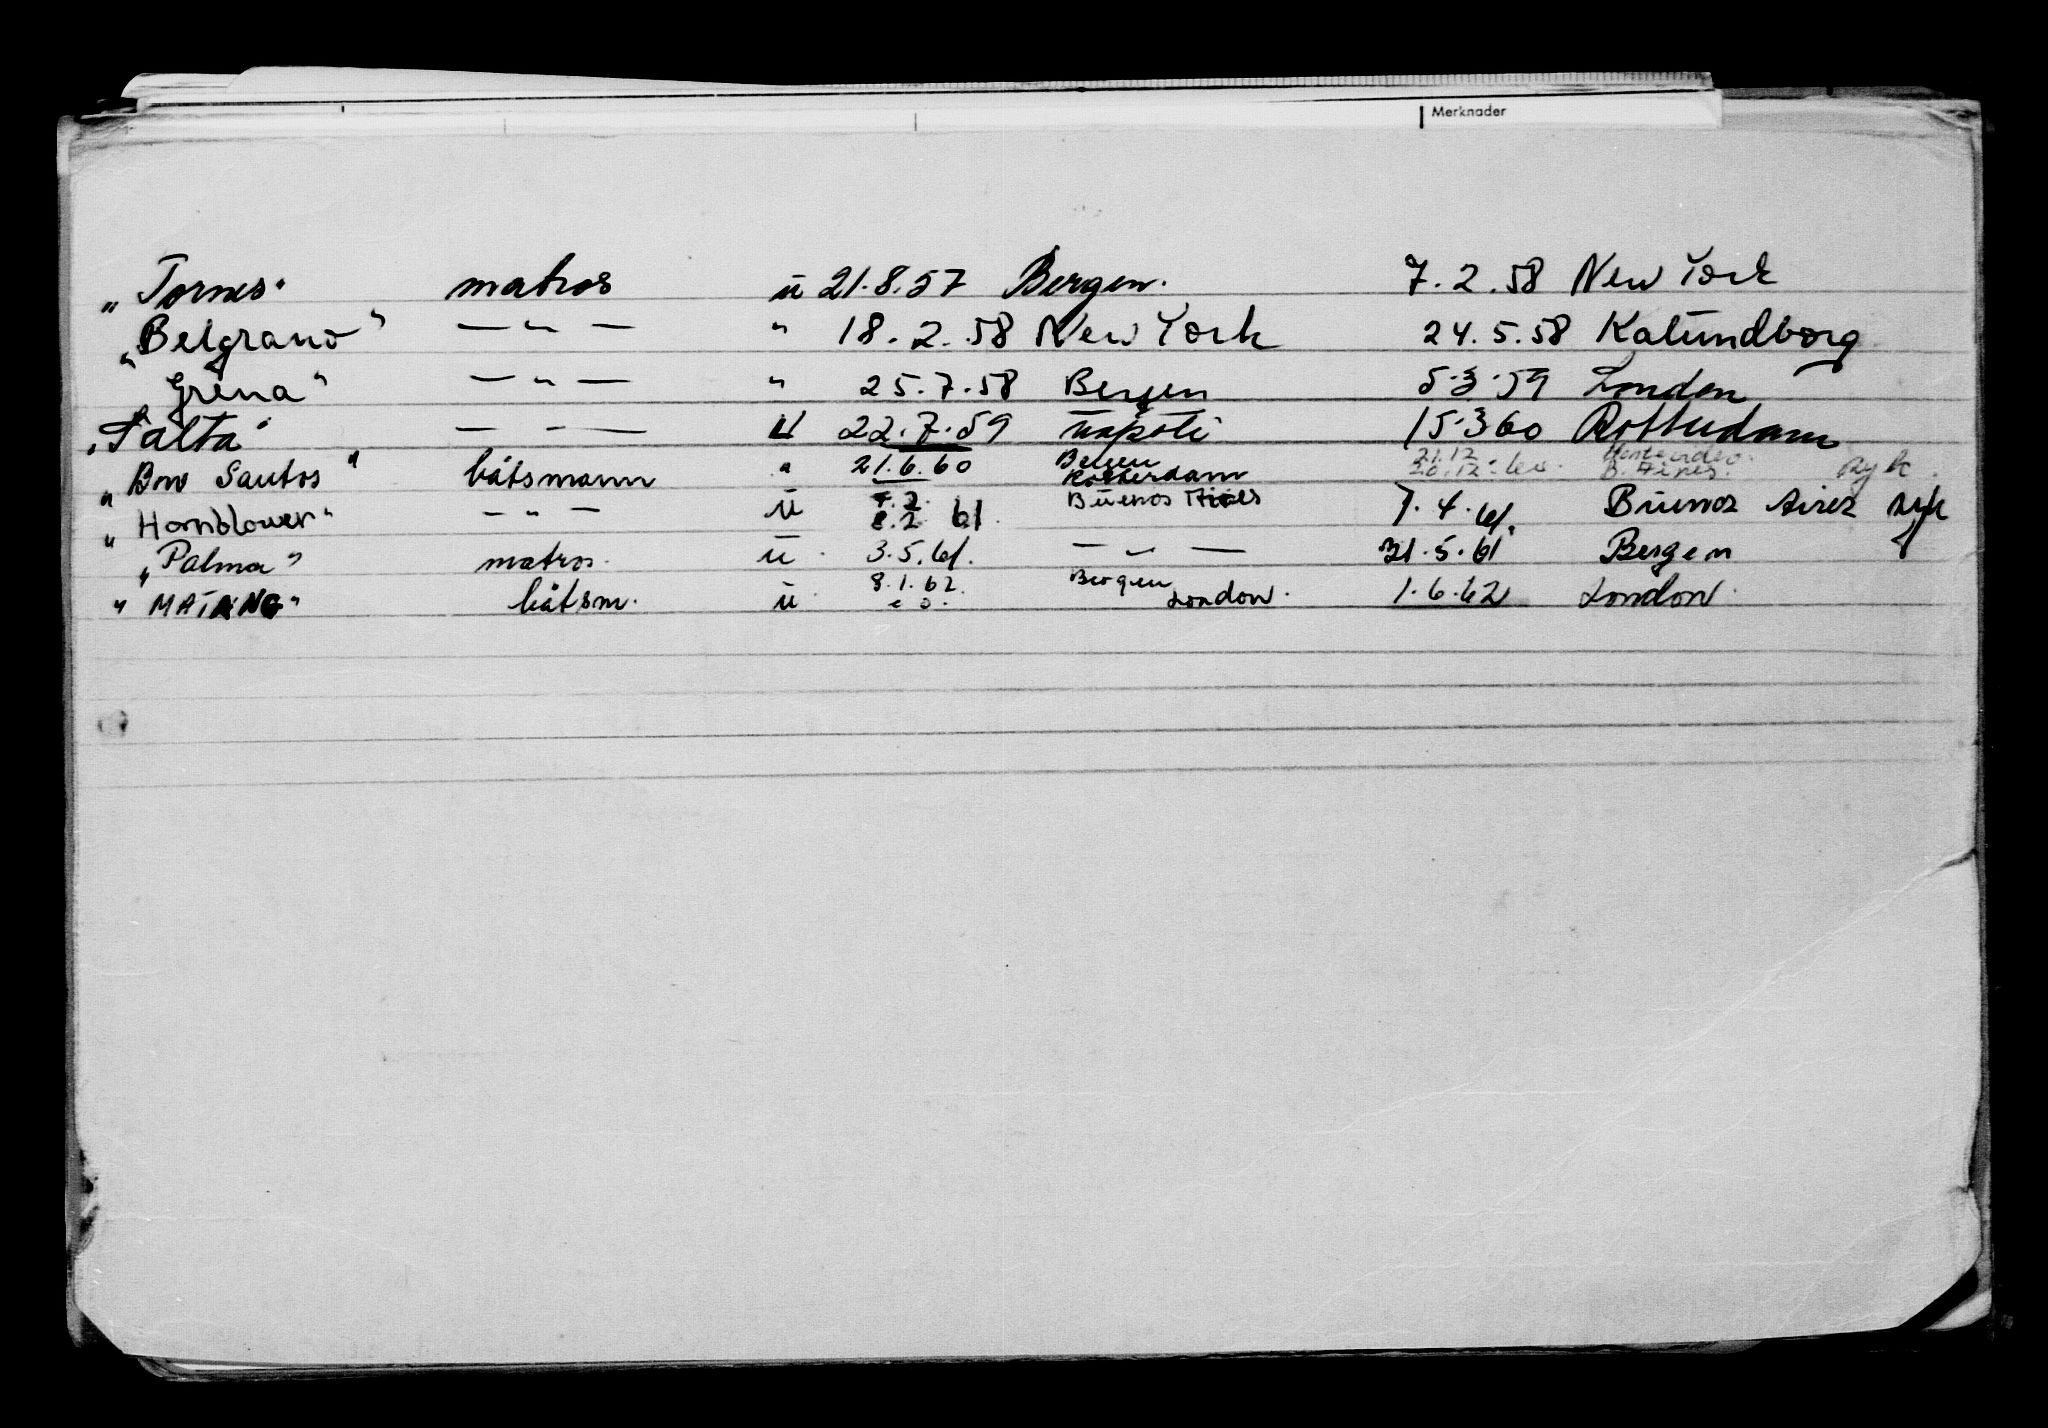 Merknader
„Tornes" matros u 21.8.57 Bergen. 7.2.58 New York
„Belgrano" — " — " 18.2.58 New York 24.5.58 Kalundborg
Grena" — " — " 25.7.58 Bergen 5.3.59 London
„Salta" — " — U 22.7.59 Napoli 15.3 60 Rotterdam
21.12 Montevideo.
„Bow Santos" båtsmann " 21.6.60 Bergen Rotterdam 20.12.60. B. Aires. syk
„Hornblower" — " — u 7.2. 8.2 61. Buenos Aires 7.4.61. Buenos Aires syk
„Palma" matros. u. 3.5.61. — " — 31.5.61 Bergen
„MATANG" båtsm. u. 8.1.62. Bergen London. 1.6.62 London.